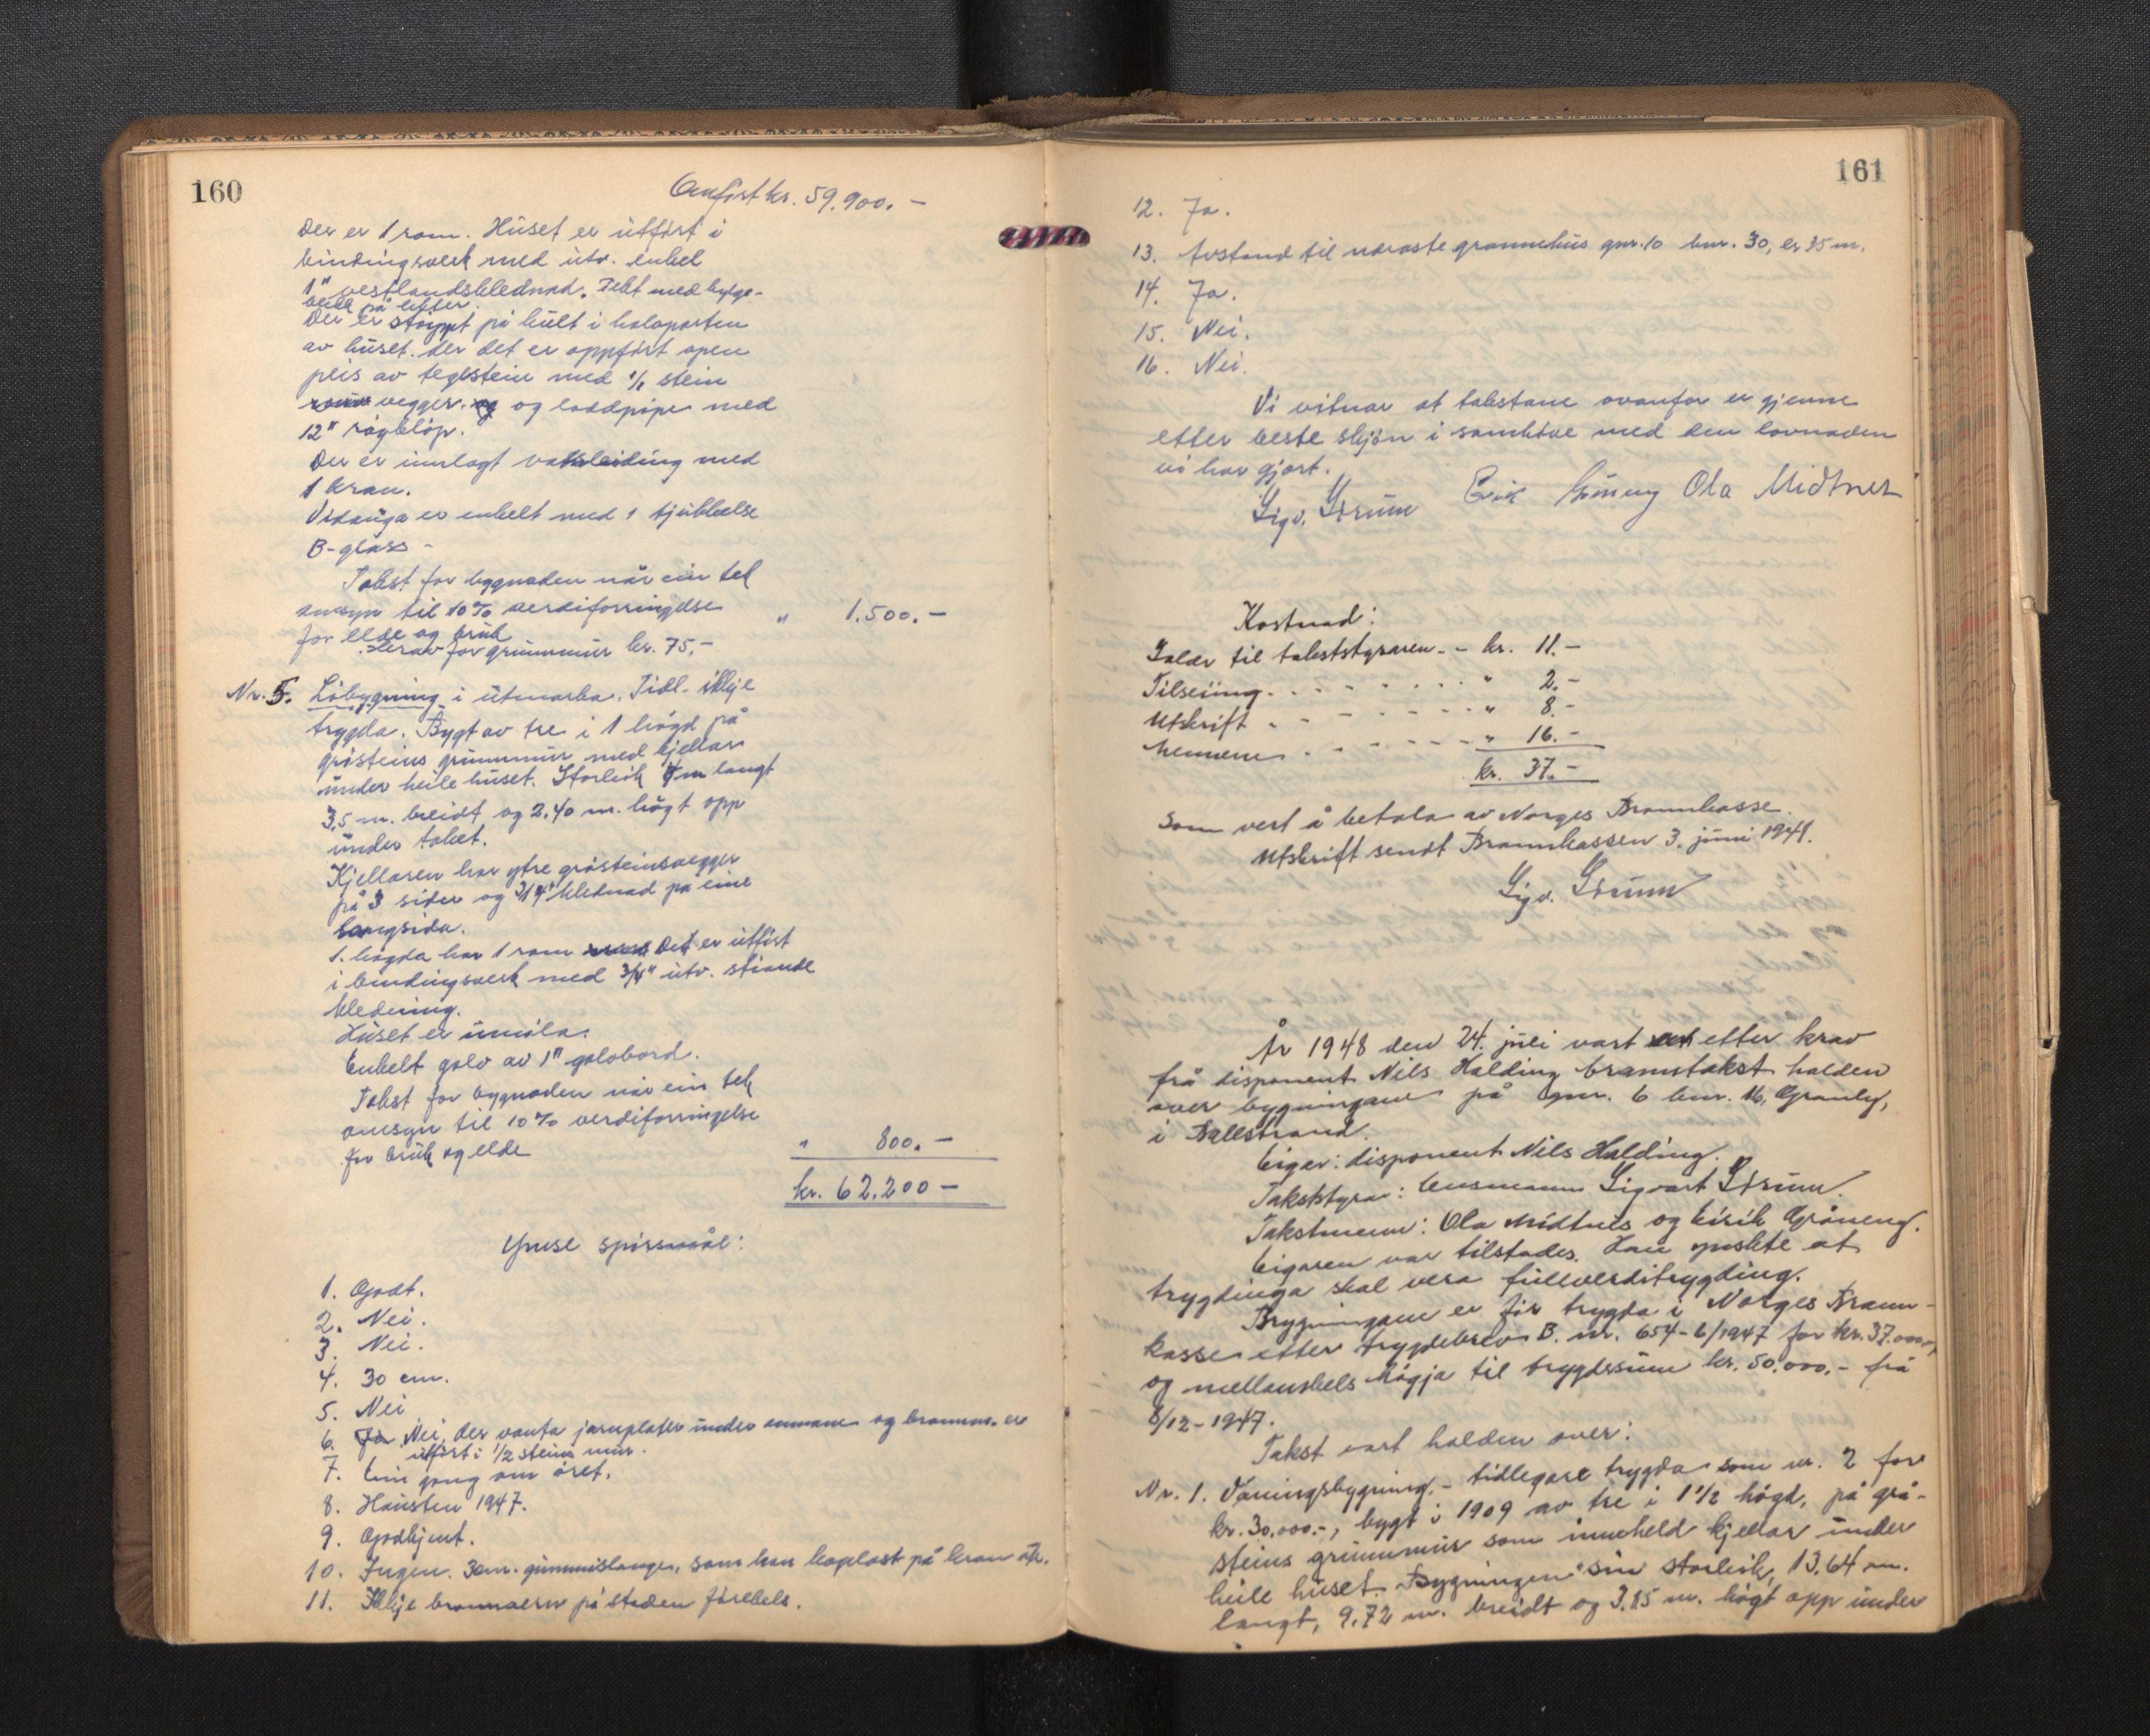 160
Omført kr. 59.900.-
Der er 1 rom. Huset er utført i
bindingsverk med utv. enkel
1" vestlandsklednad. Tekt med bylge-
blekk på lekter.
Der er støypt på kult i halvparten
av huset. der det er oppført open
peis av teglstein med 1/1 stein
vegger. og og loddpipe med
12" røykløp.
Der er innlagt vassleiding med
1 kran.
Vidauga er enkelt med 1 tjukkelse
B-glass -
Takst for bygnaden når ein tek
omsyn til 10% verdiforringelse
for elde og bruk " 1.500.-
Derav for grunnmur kr. 75,-
Nr. 5. Løbygning i utmarka. Tidl. ikkje
trygda. Bygt av tre i 1 høgd på
gråsteins grunnmur med kjellar
under heile huset. Storleik 4 m langt
3,5 m. breidt og 2,40 m. høgt opp
under taket.
Kjellaren har ytre gråsteinsvegger
på 3 sider og 3/4" klednad på eine
langsida.
1. høgda har 1 rom Det er utført
i bindingsverk med 3/4" utv.ståande
kledning.
Huset er umåla.
Enkelt golv av 1" golvbord.
Takst for bygnaden når ein tek
omsyn til 10% verdiforringelse
for bruk og elde " 800.-
kr. 62.200-
Ymse spørsmål:
1. Godt.
2. Nei.
3. Nei.
4. 30 cm.
5. Nei
6. Ja Nei, der vanta jarnplater under omnane og brannm. er
utført i 1/2 steins mur.
7. Ein gong om året.
8. Hausten 1947.
9. Godkjent.
10. Ingen. 30 m. gummislange, som kan koplast på kran ute.
11. Ikkje brannvern på staden førebels.
161
12. Ja.
13. Avstand til næraste grannehus gnr. 10 bnr. 30, er 35 m.
14. Ja.
15. Nei.
16. Nei.
Vi vitnar at takstane ovanfor er gjevne
etter beste skjøn i samhøve med den lovnaden
vi har gjort.
Sigv. Strum Eirik Grøneng Ola Midtnes
Kostnad:
Salær til takststyraren - - kr. 11.-
Tilseiing - - - " 2.-
Utskrift - - - " 8.-
Mennene - - - " 16.-
kr. 37.-
Som vert å betala av Norges Brannkasse.
Utskrift sendt Brannkassen 3. juni 1948.
Sigv. Strum
År 1948 den 24. juli vart etter krav
frå disponent Nils Halding branntakst halden
over bygningane på gnr. 6 bnr. 16, Granly,
i Balestrand.
Eigar: disponent Nils Halding.
Takststyrar: lensmann Sigvart Strum.
Takstmenn: Ola Midtnes og Eirik Grøneng.
Eigaren var tilstades. Han ynskte at
trygdinga skal vera fullverditrygding.
Bygningane er før trygda i Norges Brann-
kasse etter trygdebrev B. nr. 654-6/1947 for kr. 37.000,-
og mellombels høgja til trygdesum kr. 50.000.- frå
8/12-1947.
Takst vart halden over:
Nr. 1. Våningsbygning. - tidlegare trygda som nr. 2 for
kr. 30.000.-, bygt i 1909 av tre i 1 1/2 høgd, på grå-
steins grunnmur som inneheld kjellar under
heile huset. Bygningen sin storleik, 13,64 m.
langt, 9,72 m. breidt og 3.85 m. høgt opp under